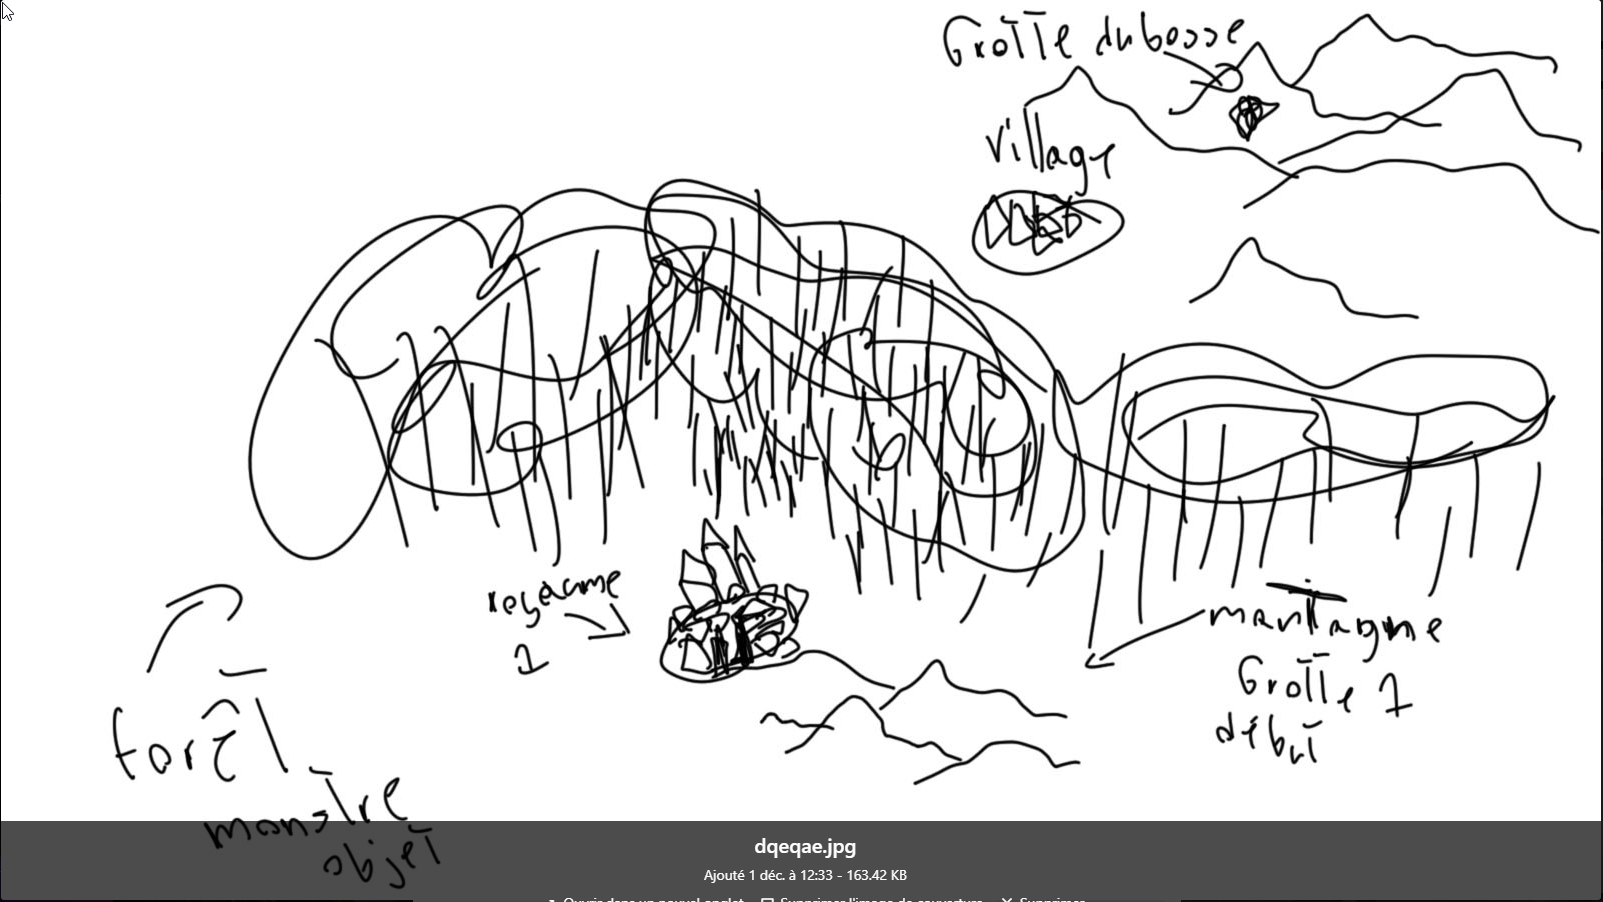 Grotte du bosse
village
royaume
1
montagne
Grotte 1
début
forêt
monstre
objet
dqeqae.jpg
Ajouté 1 déc. à 12:33 - 163.42 KB
Ouvrir dans un nouvel onglet Supprimer l'image de couverture Supprimer